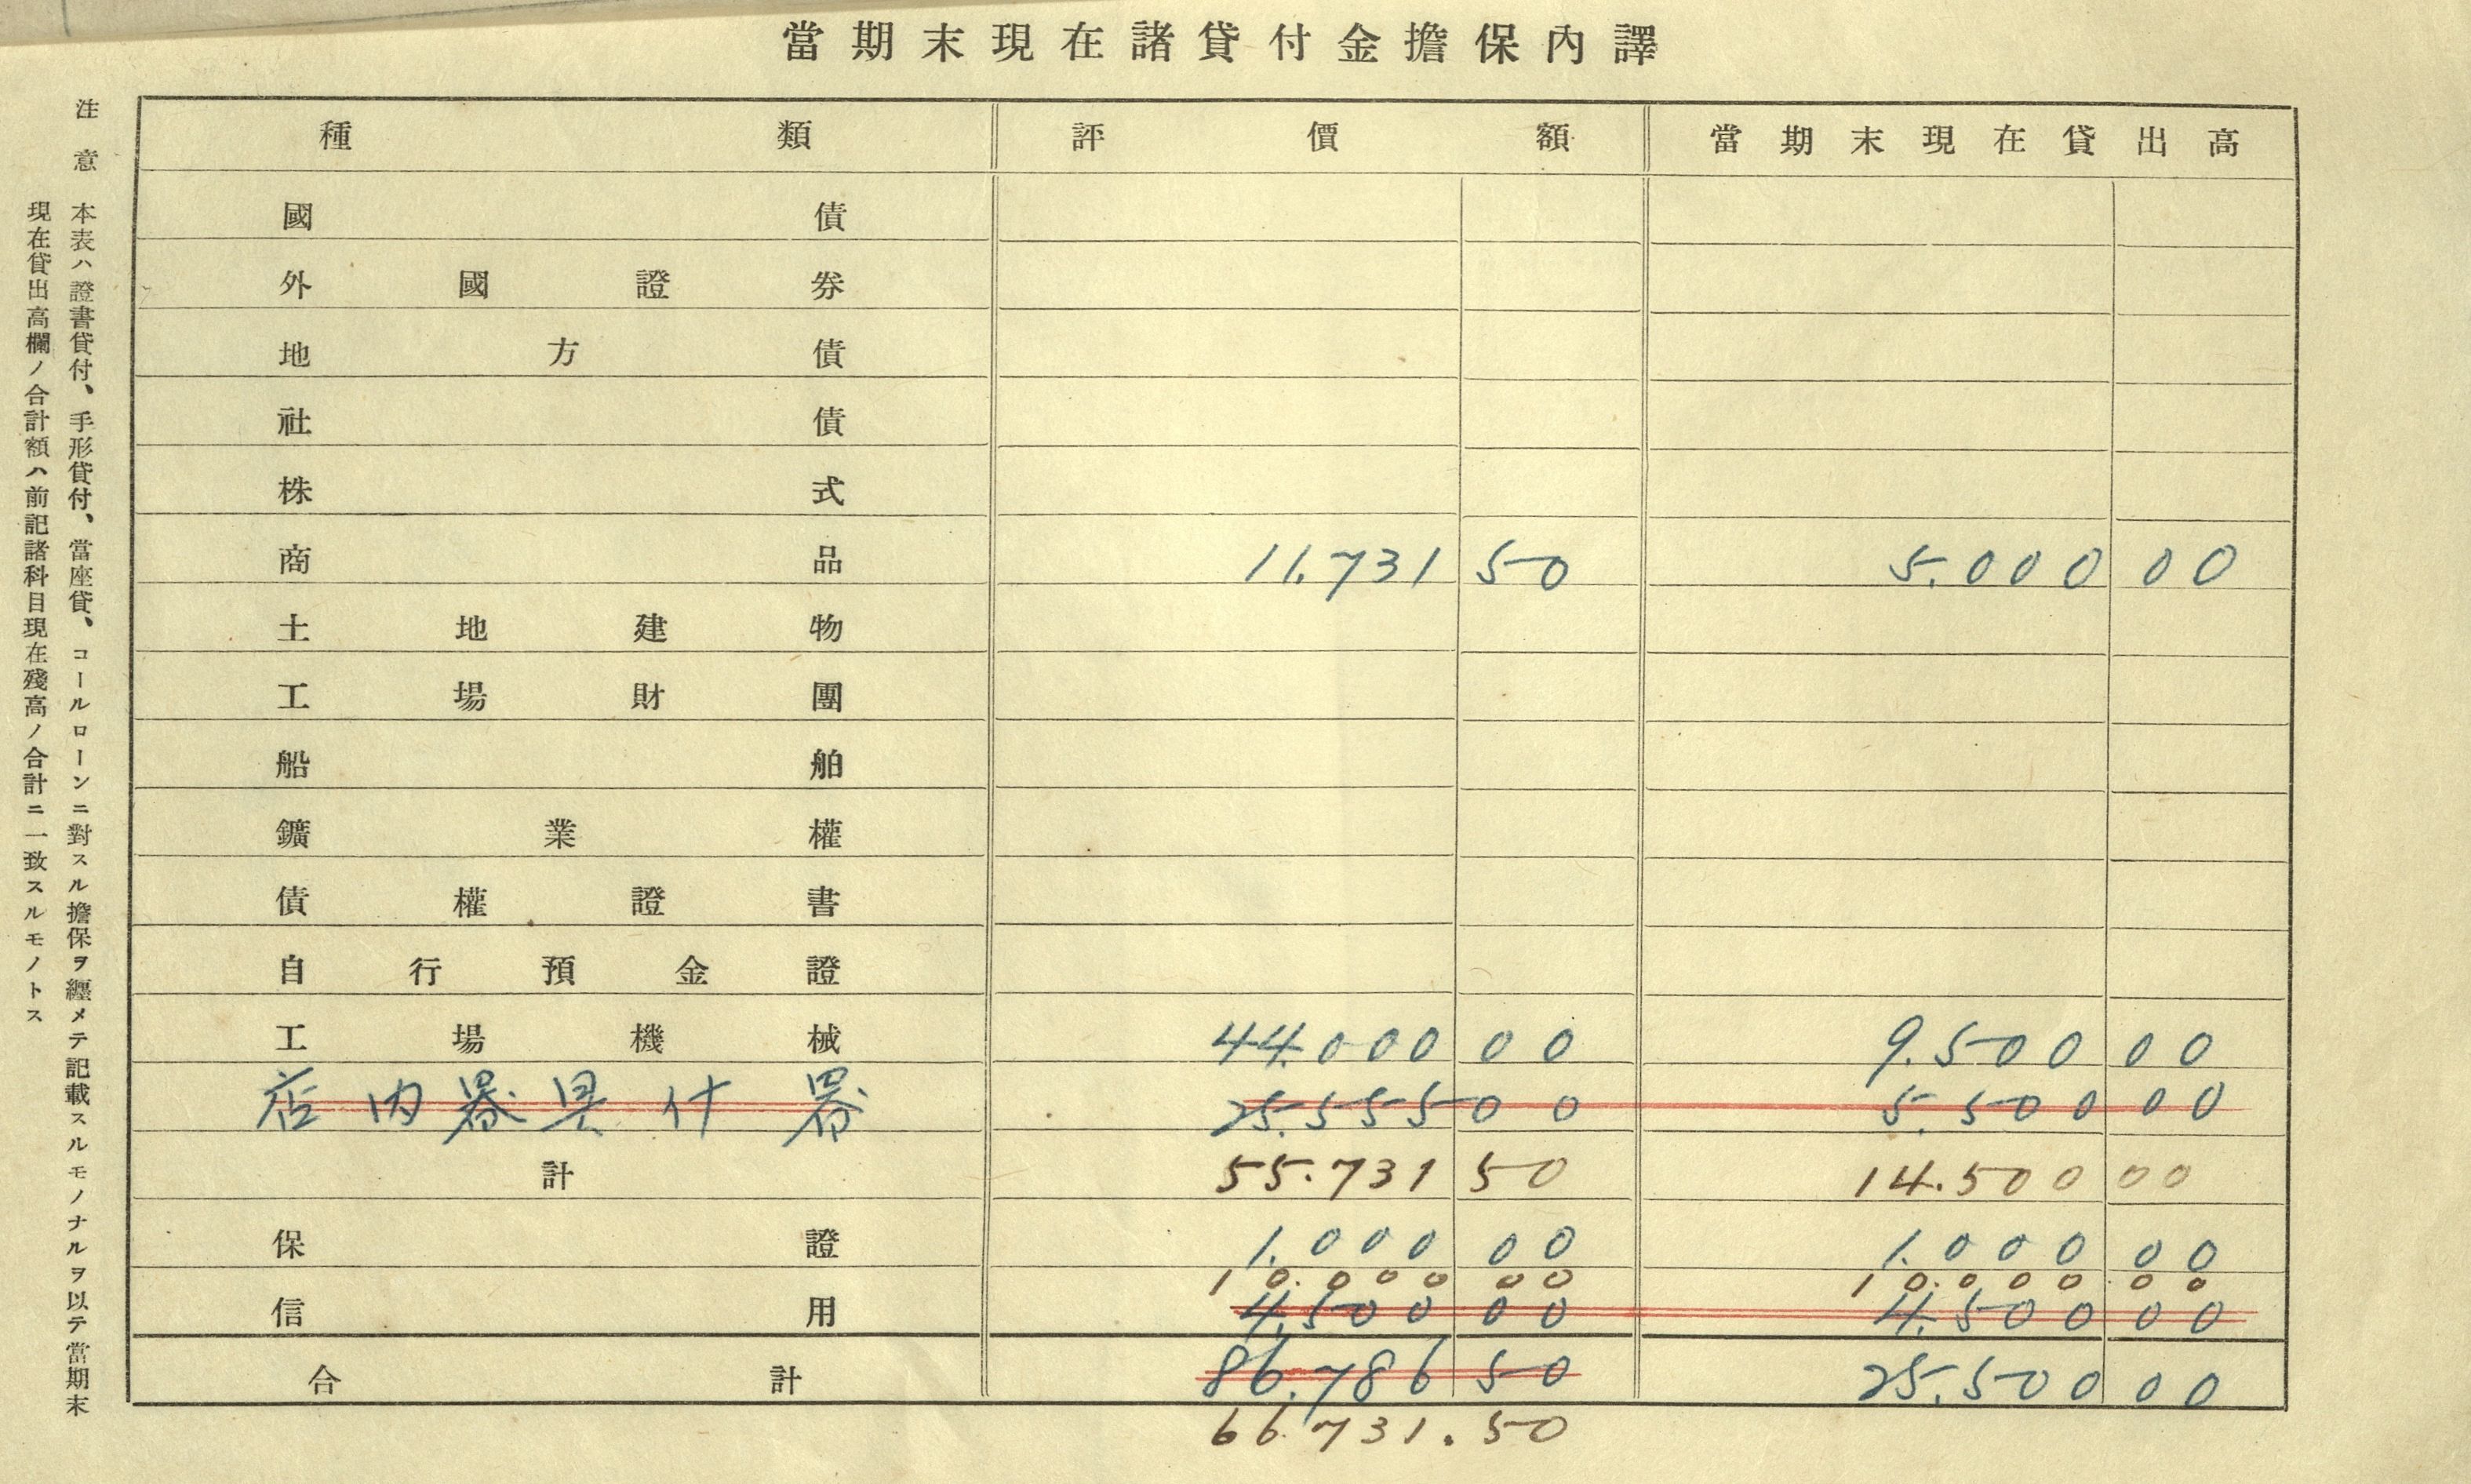 當期末現在諸貸付金擔保內譯
種類 評價額 當期末現在貸出高
國債
外國證券
地方債
社債
株式
商品 11.731 50 5.000 00
土地建物
工場財團
船舶
鑛業權
債權證書
自行預金證
工場機械 44.000 00 9.500 00
店内器具什器 25.555 00 5.500 00
計 55.731 50 14.500 00
保證 1.000 00 1.000 00
10.000 00 10.000 00
信用 4.500 00 4.500 00
合計 86.786 50 25.500 00
66.731.50
注意 本表ハ證書貸付、手形貸付、當座貸、コールローンニ對スル擔保ヲ纒メテ記載スルモノナルヲ以テ當期末
現在貸出高欄ノ合計額ハ前記諸科目現在殘高ノ合計ニ一致スルモノトス